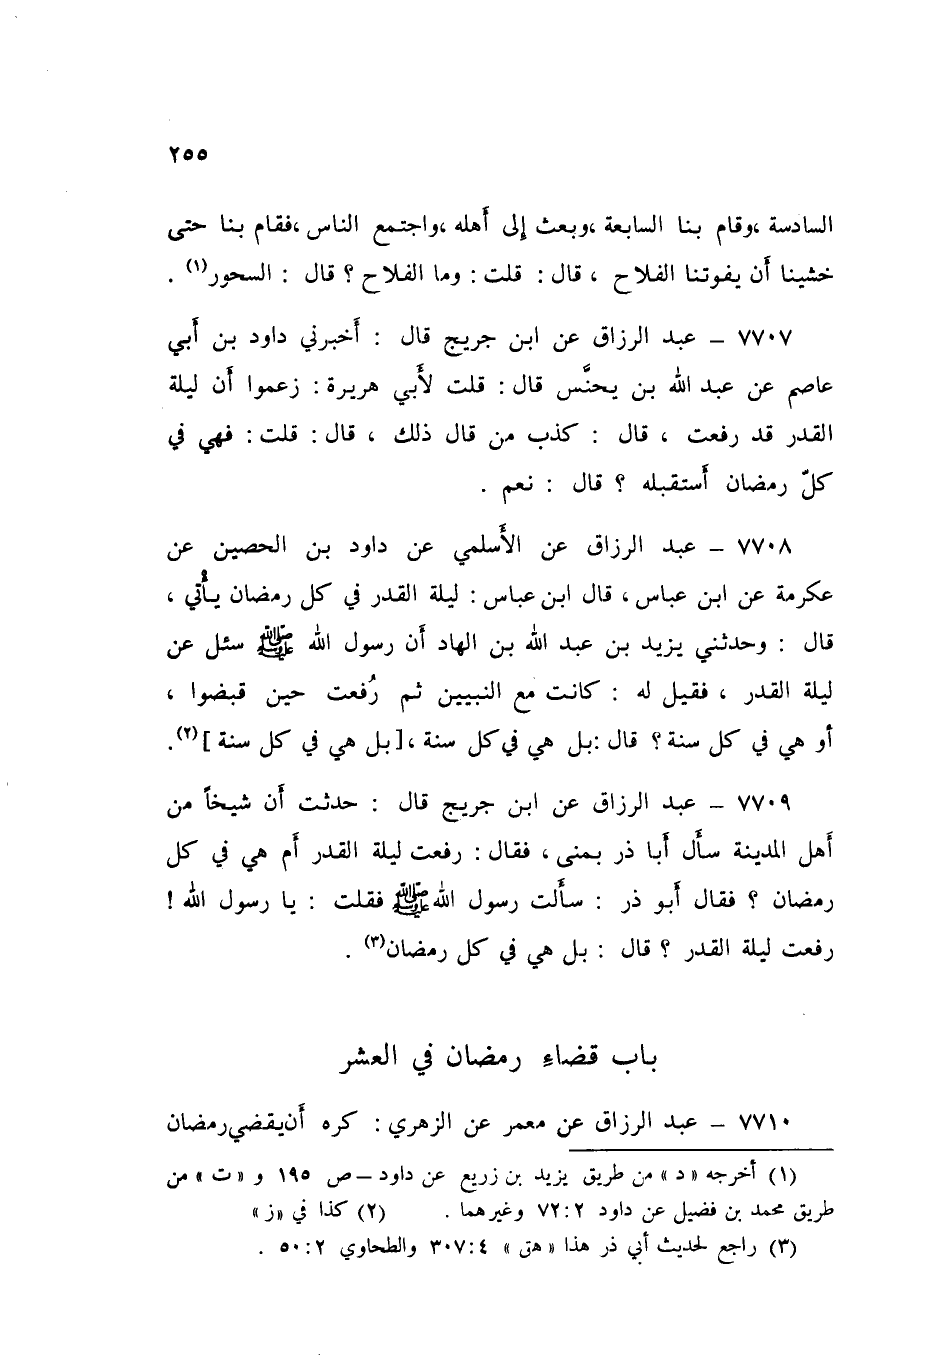 ٢٥٥
السادسة ،وقام بنا السابعة ،وبعث إلى أهله ،واجتمع الناس ،فقام بنا حتى
خشينا أن يفوتنا الفلاح ، قال : قلت : وما الفلاح ؟ قال : السحور(١) .
٧٧٠٧ – عبد الرزاق عن ابن جريج قال : أخبرني داود بن أبي
عاصم عن عبد الله بن يحنَّس قال : قلت لأبي هريرة : زعموا أن ليلة
القدر قد رفعت ، قال : كذب من قال ذلك ، قال : قلت : فهي في
كلّ رمضان أستقبله ؟ قال : نعم .
٧٧٠٨ – عبد الرزاق عن الأسلمي عن داود بن الحصين عن
عكرمة عن ابن عباس ، قال ابن عباس : ليلة القدر في كل رمضان يأتي ،
قال : وحدثني يزيد بن عبد الله بن الهاد أن رسول الله ﷺ سئل عن
ليلة القدر ، فقيل له : كانت مع النبيين ثم رُفعت حين قبضوا ،
أو هي في كل سنة ؟ قال :بل هي في كل سنة ،[بل هي في كل سنة ](٢).
٧٧٠٩ – عبد الرزاق عن ابن جريج قال : حدثت أن شيخاً من
أهل المدينة سأل أبا ذر بمنى ، فقال : رفعت ليلة القدر أم هي في كل
رمضان ؟ فقال أبو ذر : سألت رسول الله ﷺ فقلت : يا رسول الله !
رفعت ليلة القدر ؟ قال : بل هي في كل رمضان(٣) .
باب قضاء رمضان في العشر
٧٧١٠ – عبد الرزاق عن معمر عن الزهري : كره أن يقضي رمضان
(١) أخرجه «د» من طريق يزيد بن زريع عن داود – ص ١٩٥ و «ت» من
طريق محمد بن فضيل عن داود ٢ : ٧٢ وغيرهما . (٢) كذا في «ز»
(٣) راجع لحديث أبي ذر هذا «هق» ٤ : ٣٠٧ والطحاوي ٢ : ٥٠ .